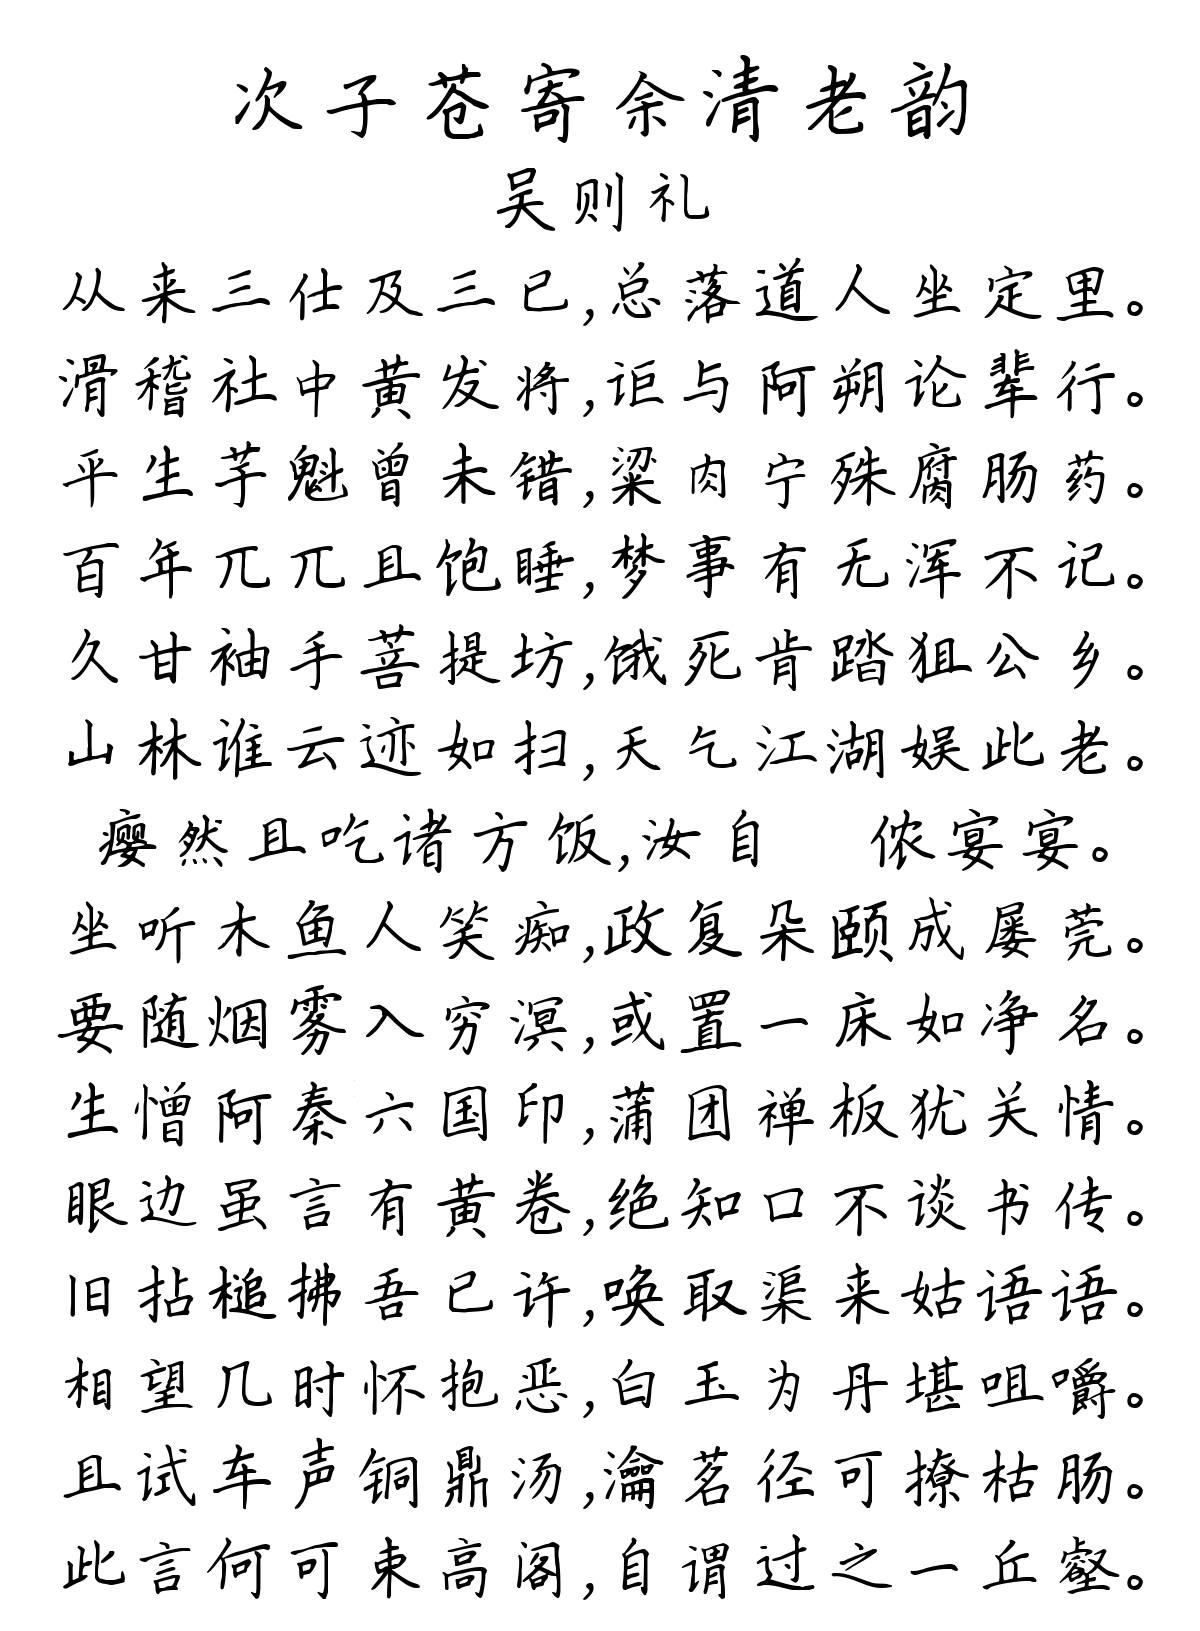 次子苍寄余清老韵
吴则礼
从来三仕及三已,总落道人坐定里。
滑稽社中黄发将,讵与阿朔论辈行。
平生芋魁曾未错,粱肉宁殊腐肠药。
百年兀兀且饱睡,梦事有无浑不记。
久甘袖手菩提坊,饿死肯踏狙公乡。
山林谁云迹如扫,天气江湖娱此老。
瘿然且吃诸方饭,汝自 侬宴宴。
坐听木鱼人笑痴,政复朵颐成屡莞。
要随烟雾入穷溟,或置一床如净名。
生憎阿秦六国印,蒲团禅板犹关情。
眼边虽言有黄卷,绝知口不谈书传。
旧拈槌拂吾已许,唤取渠来姑语语。
相望几时怀抱恶,白玉为丹堪咀嚼。
且试车声铜鼎汤,瀹茗径可撩枯肠。
此言何可束高阁,自谓过之一丘壑。